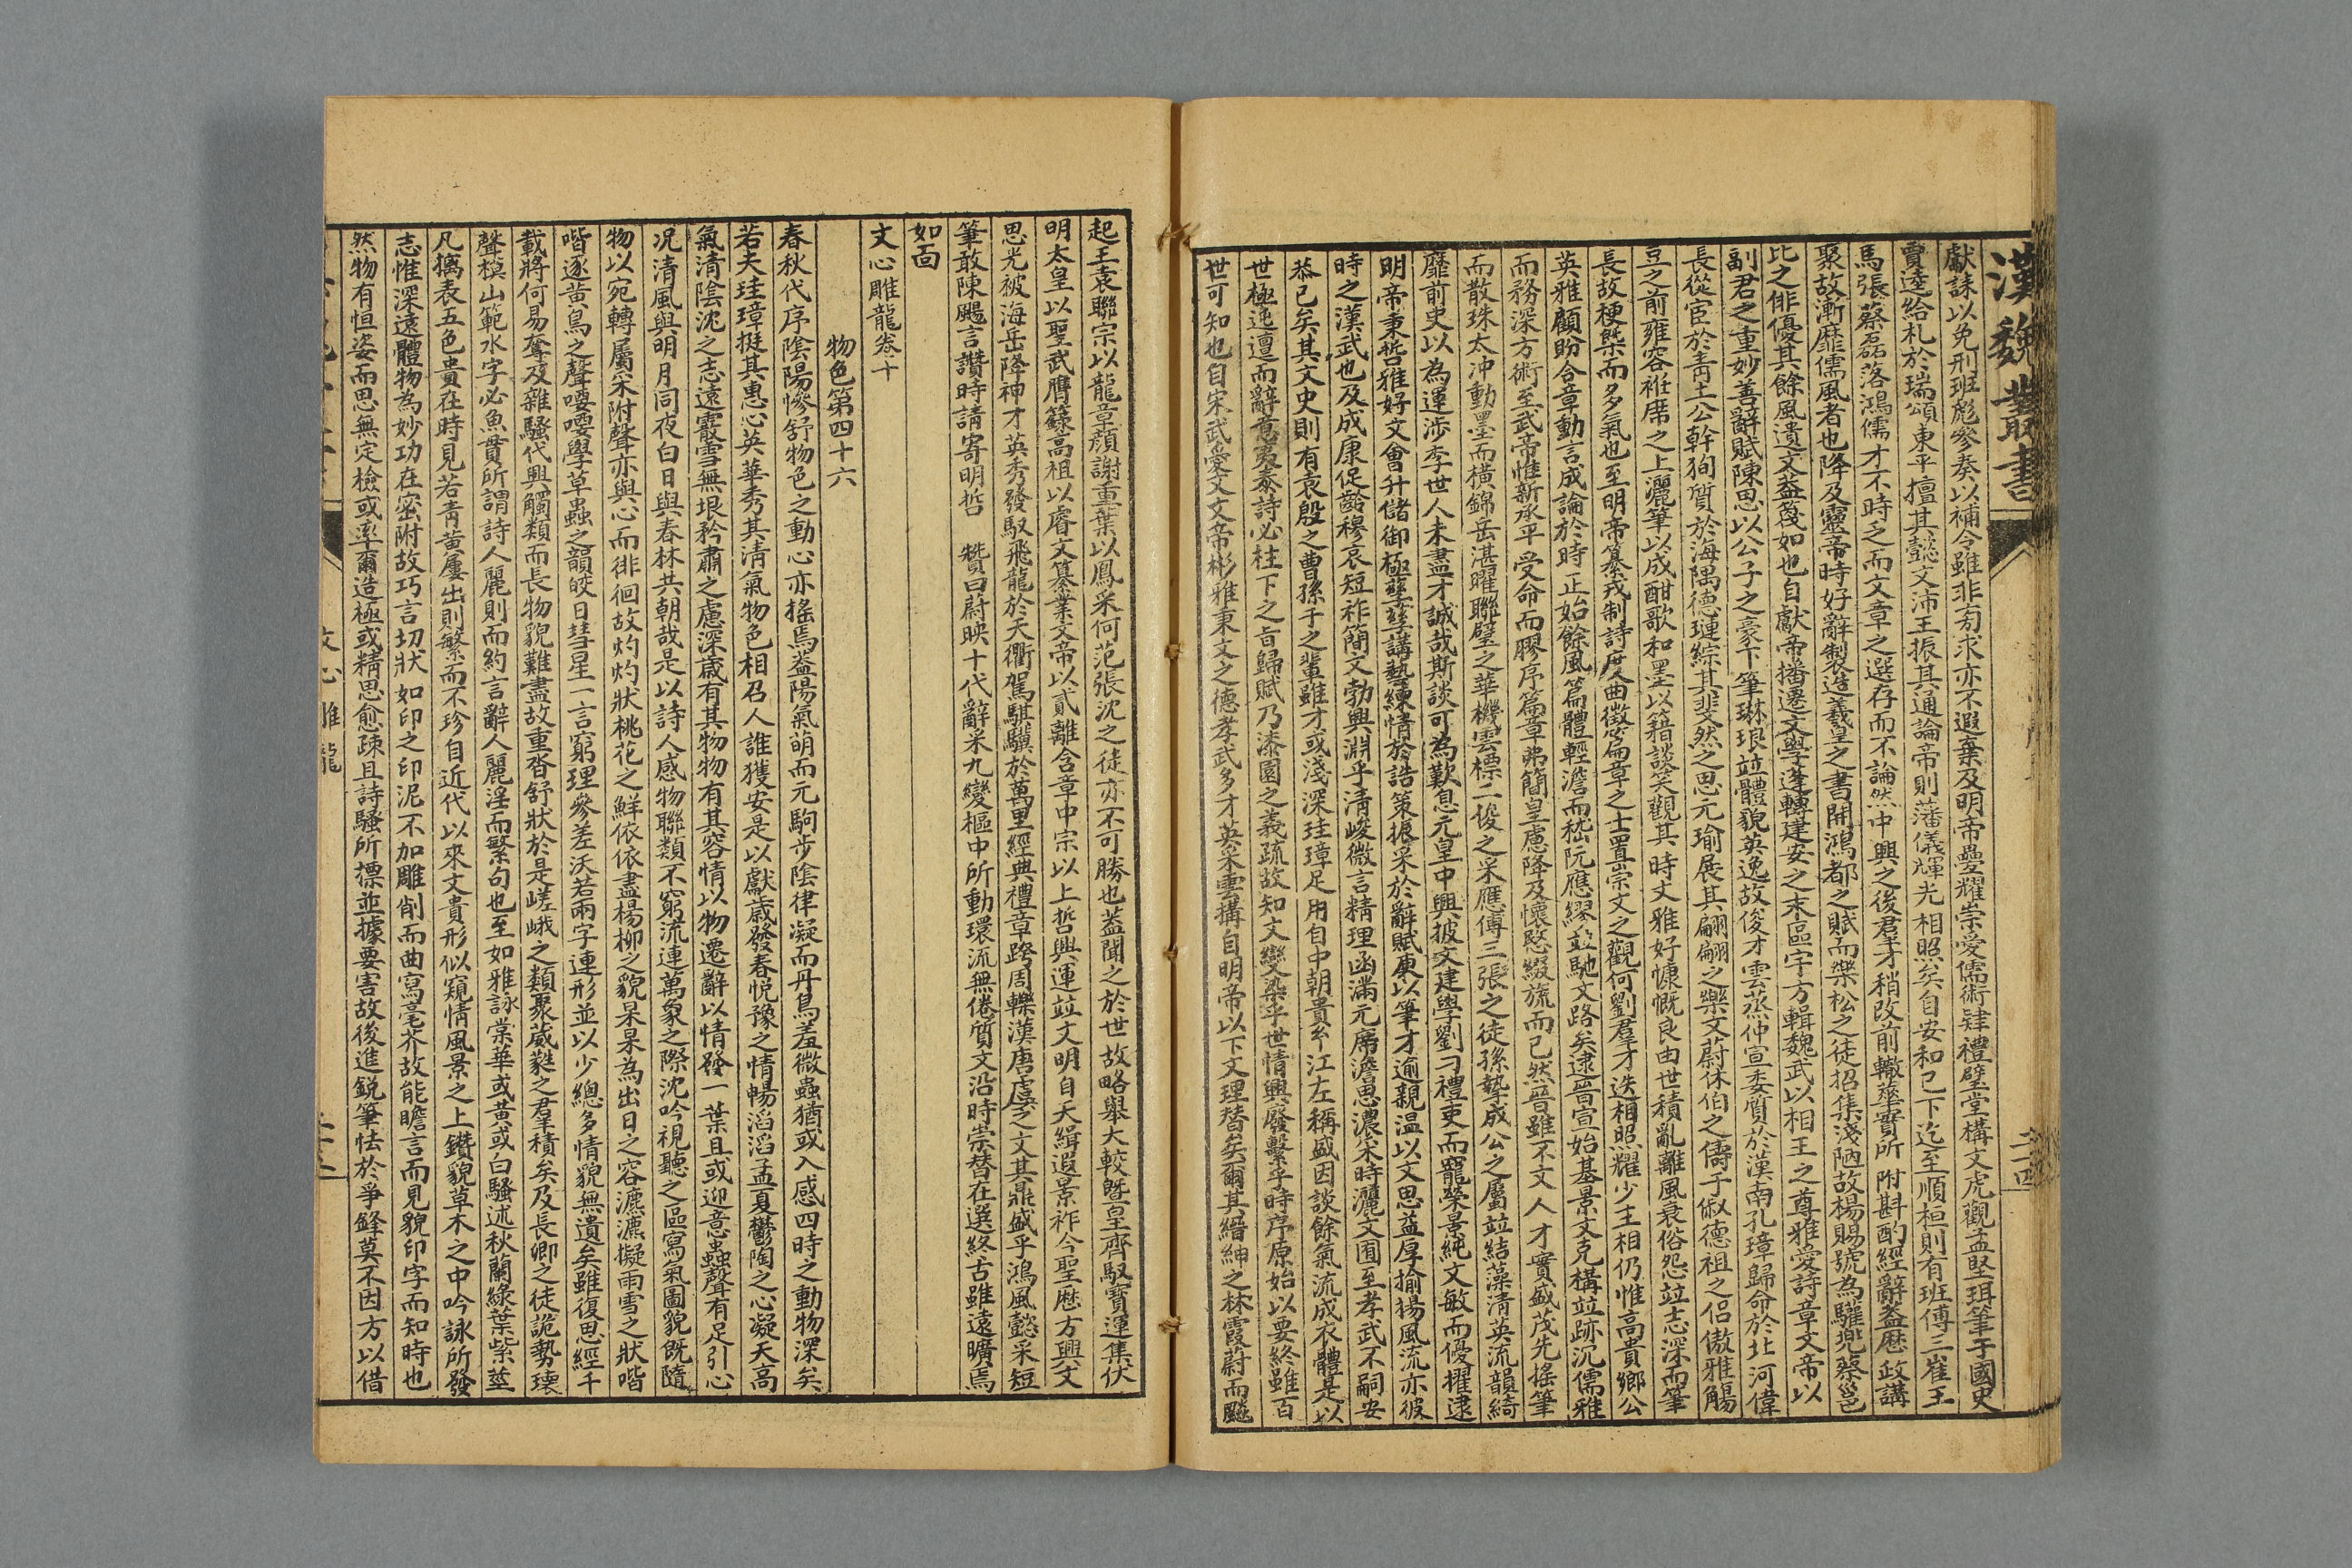 漢魏叢書
獻誄以免刑班彪參奏以補令雖非旁求亦不遐棄及明帝疊耀崇愛儒術肄禮璧堂構文虎觀孟堅珥筆于國史
賈逵給札於瑞頌東平擅其懿文沛王振其通論帝則藩儀輝光相照矣自安和已下迄至順桓則有班傅三崔王
馬張蔡磊落鴻儒才不時乏而文章之選存而不論然中興之後羣才稍改前轍華實所附斟酌經辭葢歷政講
聚故漸靡儒風者也降及靈帝時好辭製造羲皇之書開鴻都之賦而樂松之徒招集淺陋故楊賜號為驩兜蔡邕
比之俳優其餘風遺文葢蔑如也自獻帝播遷文學蓬轉建安之末區宇方輯魏武以相王之尊雅愛詩章文帝以
副君之重妙善辭賦陳思以公子之豪下筆琳琅竝體貌英逸故俊才雲蒸仲宣委質於漢南孔璋歸命於北河偉
長從宦於青土公幹狥質於海隅德璉綜其斐然之思元瑜展其翩翩之樂文蔚休伯之儔于俶德祖之侶傲雅觴
豆之前雍容袵席之上灑筆以成酣歌和墨以籍談笑觀其時文雅好慷慨良由世積亂離風衰俗怨竝志深而筆
長故梗槩而多氣也至明帝纂戎制詩度曲徵篇章之士置崇文之觀何劉羣才迭相照耀少主相仍惟高貴鄉公
英雅顧盼合章動言成論於時正始餘風篇體輕澹而嵇阮應繆竝馳文路矣逮晉宣始基景文克構竝跡沉儒雅
而務深方術至武帝惟新承平受命而膠序篇章弗簡皇慮降及懷愍綴旒而已然晉雖不文人才實盛茂先搖筆
而散珠太冲動墨而橫錦岳湛曜聯璧之華機雲標二俊之采應傅三張之徒孫摯成公之屬竝結藻清英流韻綺
靡前史以為運涉季世人未盡才誠哉斯談可為歎息元皇中興披文建學劉刁禮吏而寵榮景純文敏而優擢逮
明帝秉哲雅好文會升儲御極孳孳講藝練情於誥策振采於辭賦庾以筆才逾親温以文思益厚揄揚風流亦彼
時之漢武也及成康促齡穆哀短祚簡文勃興淵乎清峻微言精理函滿元席澹思濃采時灑文囿至孝武不嗣安
恭已矣其文史則有袁殷之曹孫干之輩雖才或淺深珪璋足用自中朝貴𤣥江左稱盛因談餘氣流成衣體是以
世極迍邅而辭意夷泰詩必柱下之旨歸賦乃漆園之義疏故知文變染乎世情興廢繫乎時序原始以要終雖百
世可知也自宋武愛文文帝彬雅秉文之德孝武多才英采雲搆自明帝以下文理替矣爾其縉紳之林霞蔚而飈
起王袁聯宗以龍章顔謝重葉以鳳采何范張沈之徒亦不可勝也葢聞之於世故略舉大較暨皇齊馭寶運集休
明太皇以聖武膺籙高祖以睿文纂業文帝以貳離含章中宗以上哲興運竝文明自天緝遐景祚今聖歷方興文
思光被海岳降神才英秀發馭飛龍於天衢駕騏驥於萬里經典禮章跨周轢漢唐虞之文其鼎盛乎鴻風懿采短
筆敢陳颺言讚時請寄明哲　贊曰蔚映十代辭采九變樞中所動環流無倦質文沿時崇替在選終古雖遠曠焉
如面
文心雕龍卷十
物色第四十六
春秋代序陰陽慘舒物色之動心亦搖焉葢陽氣萌而元駒步陰律凝而丹鳥羞微蟲猶或入感四時之動物深矣
若夫珪璋挺其惠心英華秀其清氣物色相召人誰獲安是以獻歲發春悅豫之情暢滔滔孟夏鬱陶之心凝天高
氣清陰沈之志遠霰雪無垠矜肅之慮深歲有其物物有其容情以物遷辭以情發一葉且或迎意蟲聲有足引心
况清風與明月同夜白日與春林共朝哉是以詩人感物聯類不窮流連萬象之際沈吟視聽之區寫氣圖貌既隨
物以宛轉屬采附聲亦與心而徘徊故灼灼狀桃花之鮮依依盡楊柳之貌杲杲為出日之容漉漉擬雨雪之狀喈
喈逐黃鳥之聲喓喓學草蟲之韻皎日彗星一言窮理參差沃若兩字連形並以少總多情貌無遺矣雖復思經千
載將何易奪及雜騷代興觸類而長物貌難盡故重沓舒狀於是嵯峨之類聚葳蕤之羣積矣及長卿之徒詭勢瓌
聲模山範水字必魚貫所謂詩人麗則而約言辭人麗淫而繁句也至如雅詠棠華或黃或白騷述秋蘭綠葉紫莖
凡摛表五色貴在時見若青黃屢出則繁而不珍自近代以來文貴形似窺情風景之上鑽貌草木之中吟詠所發
志惟深遠體物為妙功在密附故巧言切狀如印之印泥不加雕削而曲寫毫芥故能瞻言而見貌印字而知時也
然物有恒姿而思無定檢或率爾造極或精思愈疎且詩騷所標並據要害故後進鋭筆怯於爭鋒莫不因方以借
文心雕龍